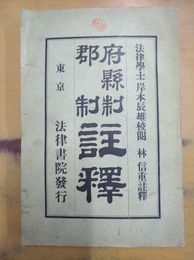 法律學士岸本辰雄校閲 林信重註釋
府縣制
郡制
註釋
東京 法律書院發行